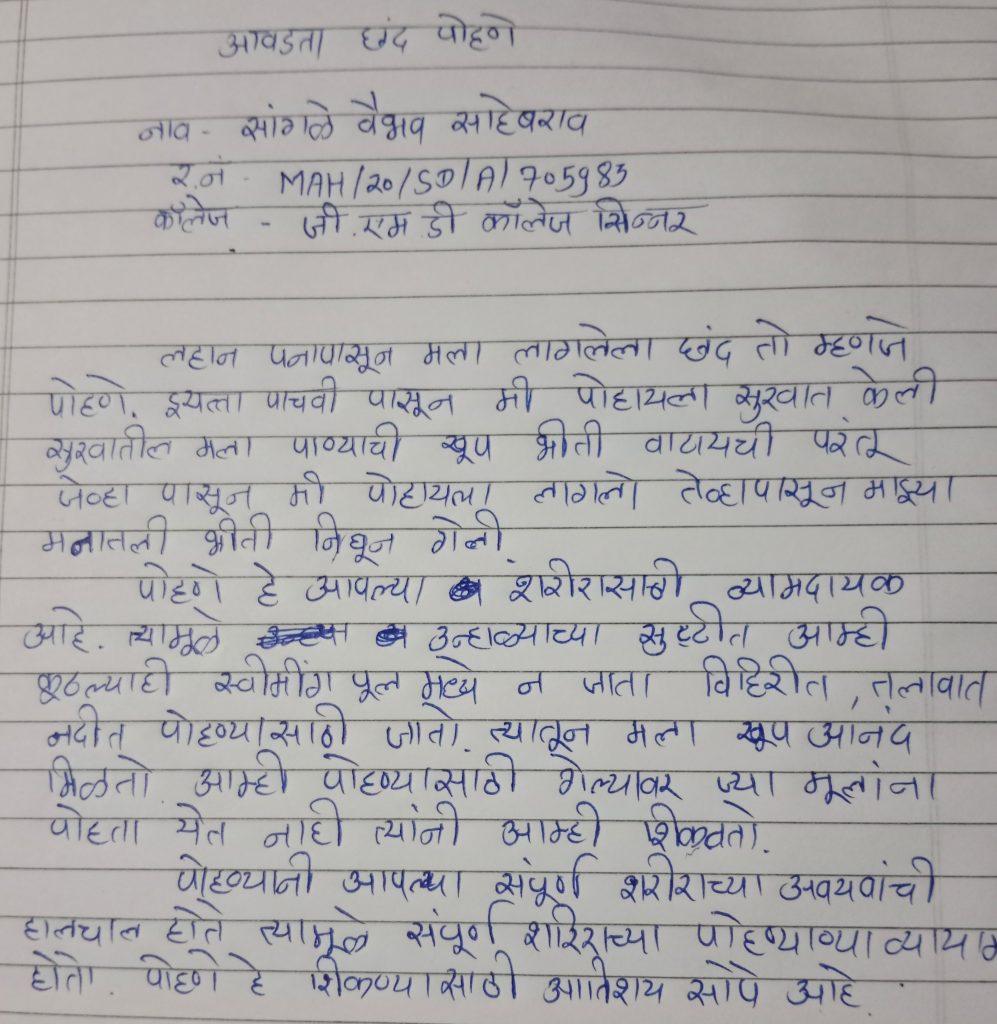 आवडता छंद पोहणे
नाव - सांगळे वैभव साहेबराव
र.नं - MAH/20/SD/A/705983
कॉलेज - जी.एम.डी कॉलेज सिन्नर
लहान पनापासून मला लागलेला छंद तो म्हणजे
पोहणे. इयत्ता पाचवी पासून मी पोहायला सुरवात केली
सुरवातील मला पाण्याची खूप भीती वाटायची परंतू
जेव्हा पासून मी पोहायला लागलो तेव्हापासून माझ्या
मनातली भीती निघून गेली.
पोहणे हे आपल्या शरीरासाठी व्यामदायक
आहे. त्यामूळे उन्हाळ्याच्या सुट्टीत आम्ही
कूठल्याही स्वीमींग पूल मध्ये न जाता विहिरीत, तलावात
नदीत पोहण्यासाठी जातो. त्यातून मला खूप आनंद
मिळतो आम्ही पोहण्यासाठी गेल्यावर ज्या मूलांना
पोहता येत नाही त्यांनी आम्ही शिकवतो.
पोहण्यानी आपल्या संपूर्ण शरीराच्या अवयवांची
हालचाल होते त्यामूळे संपूर्ण शरिराच्या पोहण्याच्या व्यायाम
होतो. पोहणे हे शिकण्यासाठी अतिशय सोपे आहे.